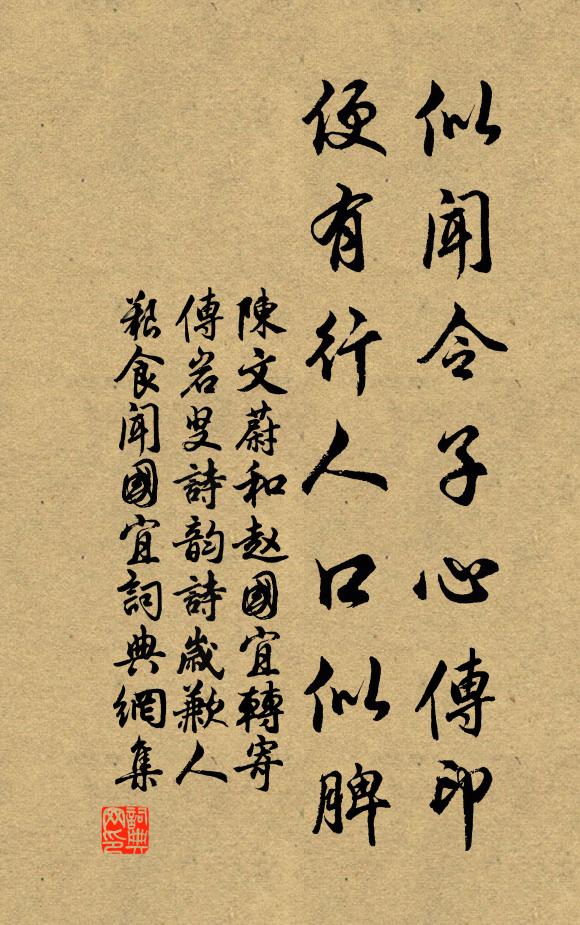 似聞令子心傳印
便有行人口似脾
陳文蔚和赵國宜轉寄
傳岩叟詩韵詩歲歉人
艱食聞國宜詞典網集
詞典网印